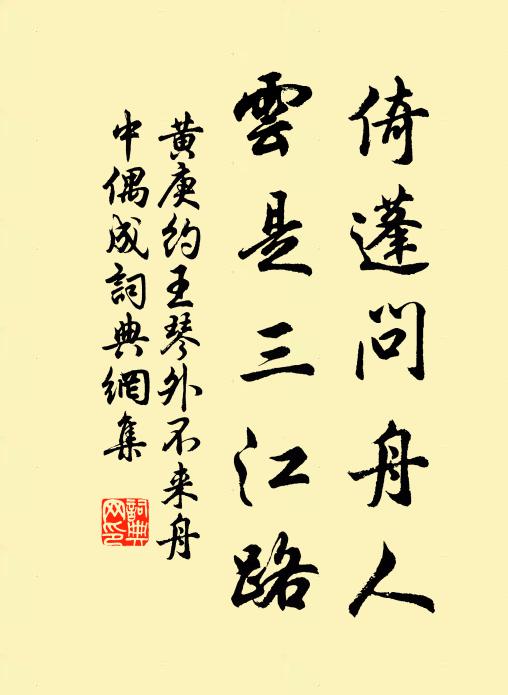 倚蓬問舟人
雲是三江路
黄庚約王琴外不来舟
中偶成詞典網集
詞典
网印